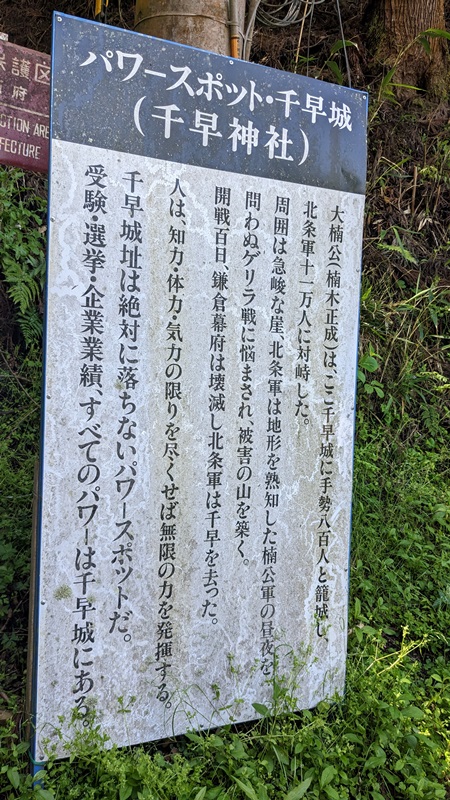 パワースポット・千早城
(千早神社)
大楠公(楠木正成)は、ここ千早城に手勢八百人と籠城し
北条軍十一万人に対峙した。
周囲は急峻な崖、北条軍は地形を熟知した楠公軍の昼夜を
問わぬゲリラ戦に悩まされ、被害の山を築く。
開戦百日、鎌倉幕府は壊滅し北条軍は千早を去った。
人は、知力・体力・気力の限りを尽くせば無限の力を発揮する。
千早城址は絶対に落ちないパワースポットだ。
受験・選挙・企業業績、すべてのパワーは千早城にある。
護区
府
CTION AREA
FECTURE